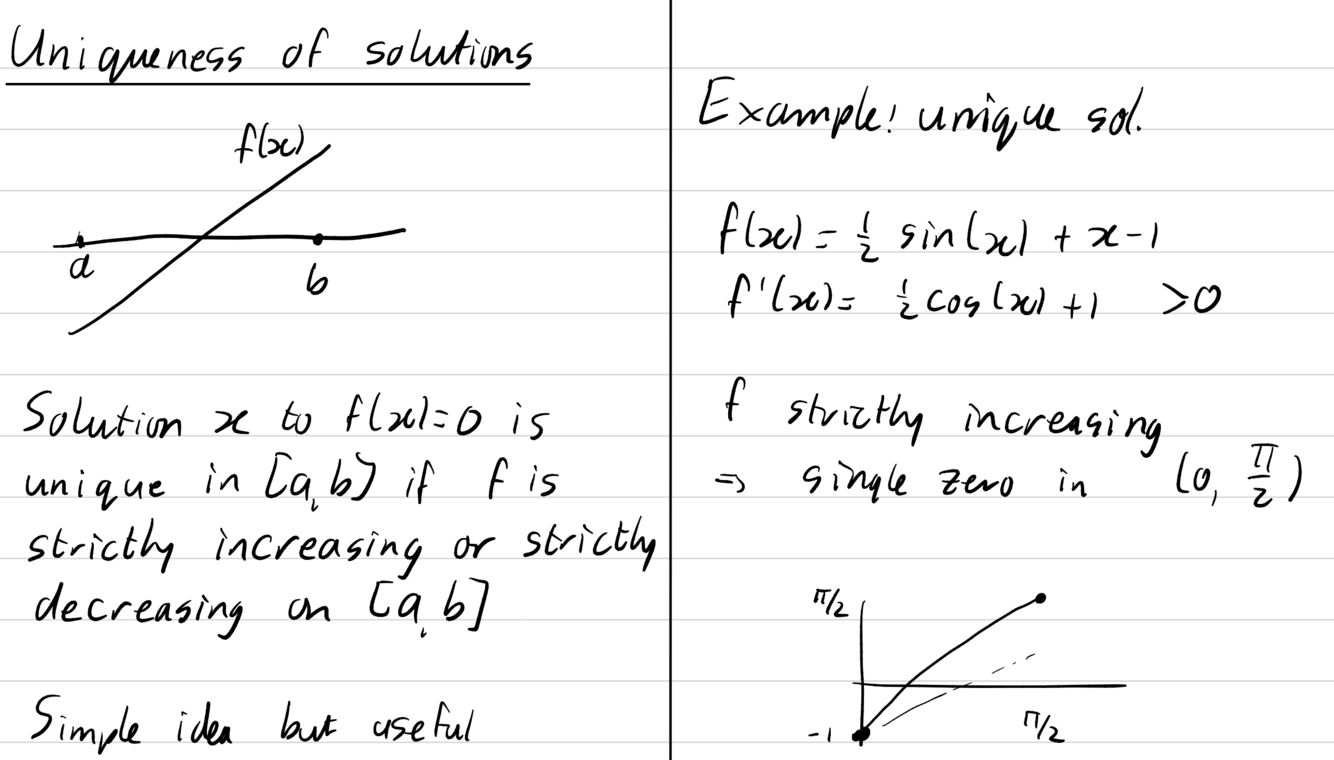 Uniqueness of solutions
f(x)
a
b
Solution x to f(x)=0 is
unique in [a,b] if f is
strictly increasing or strictly
decreasing on [a,b]
Simple idea but useful
Example: unique sol.
f(x) = 1/2 sin(x) + x-1
f'(x) = 1/2 cos(x) + 1 >0
f strictly increasing
⇒ single zero in (0, π/2)
π/2
-1
π/2